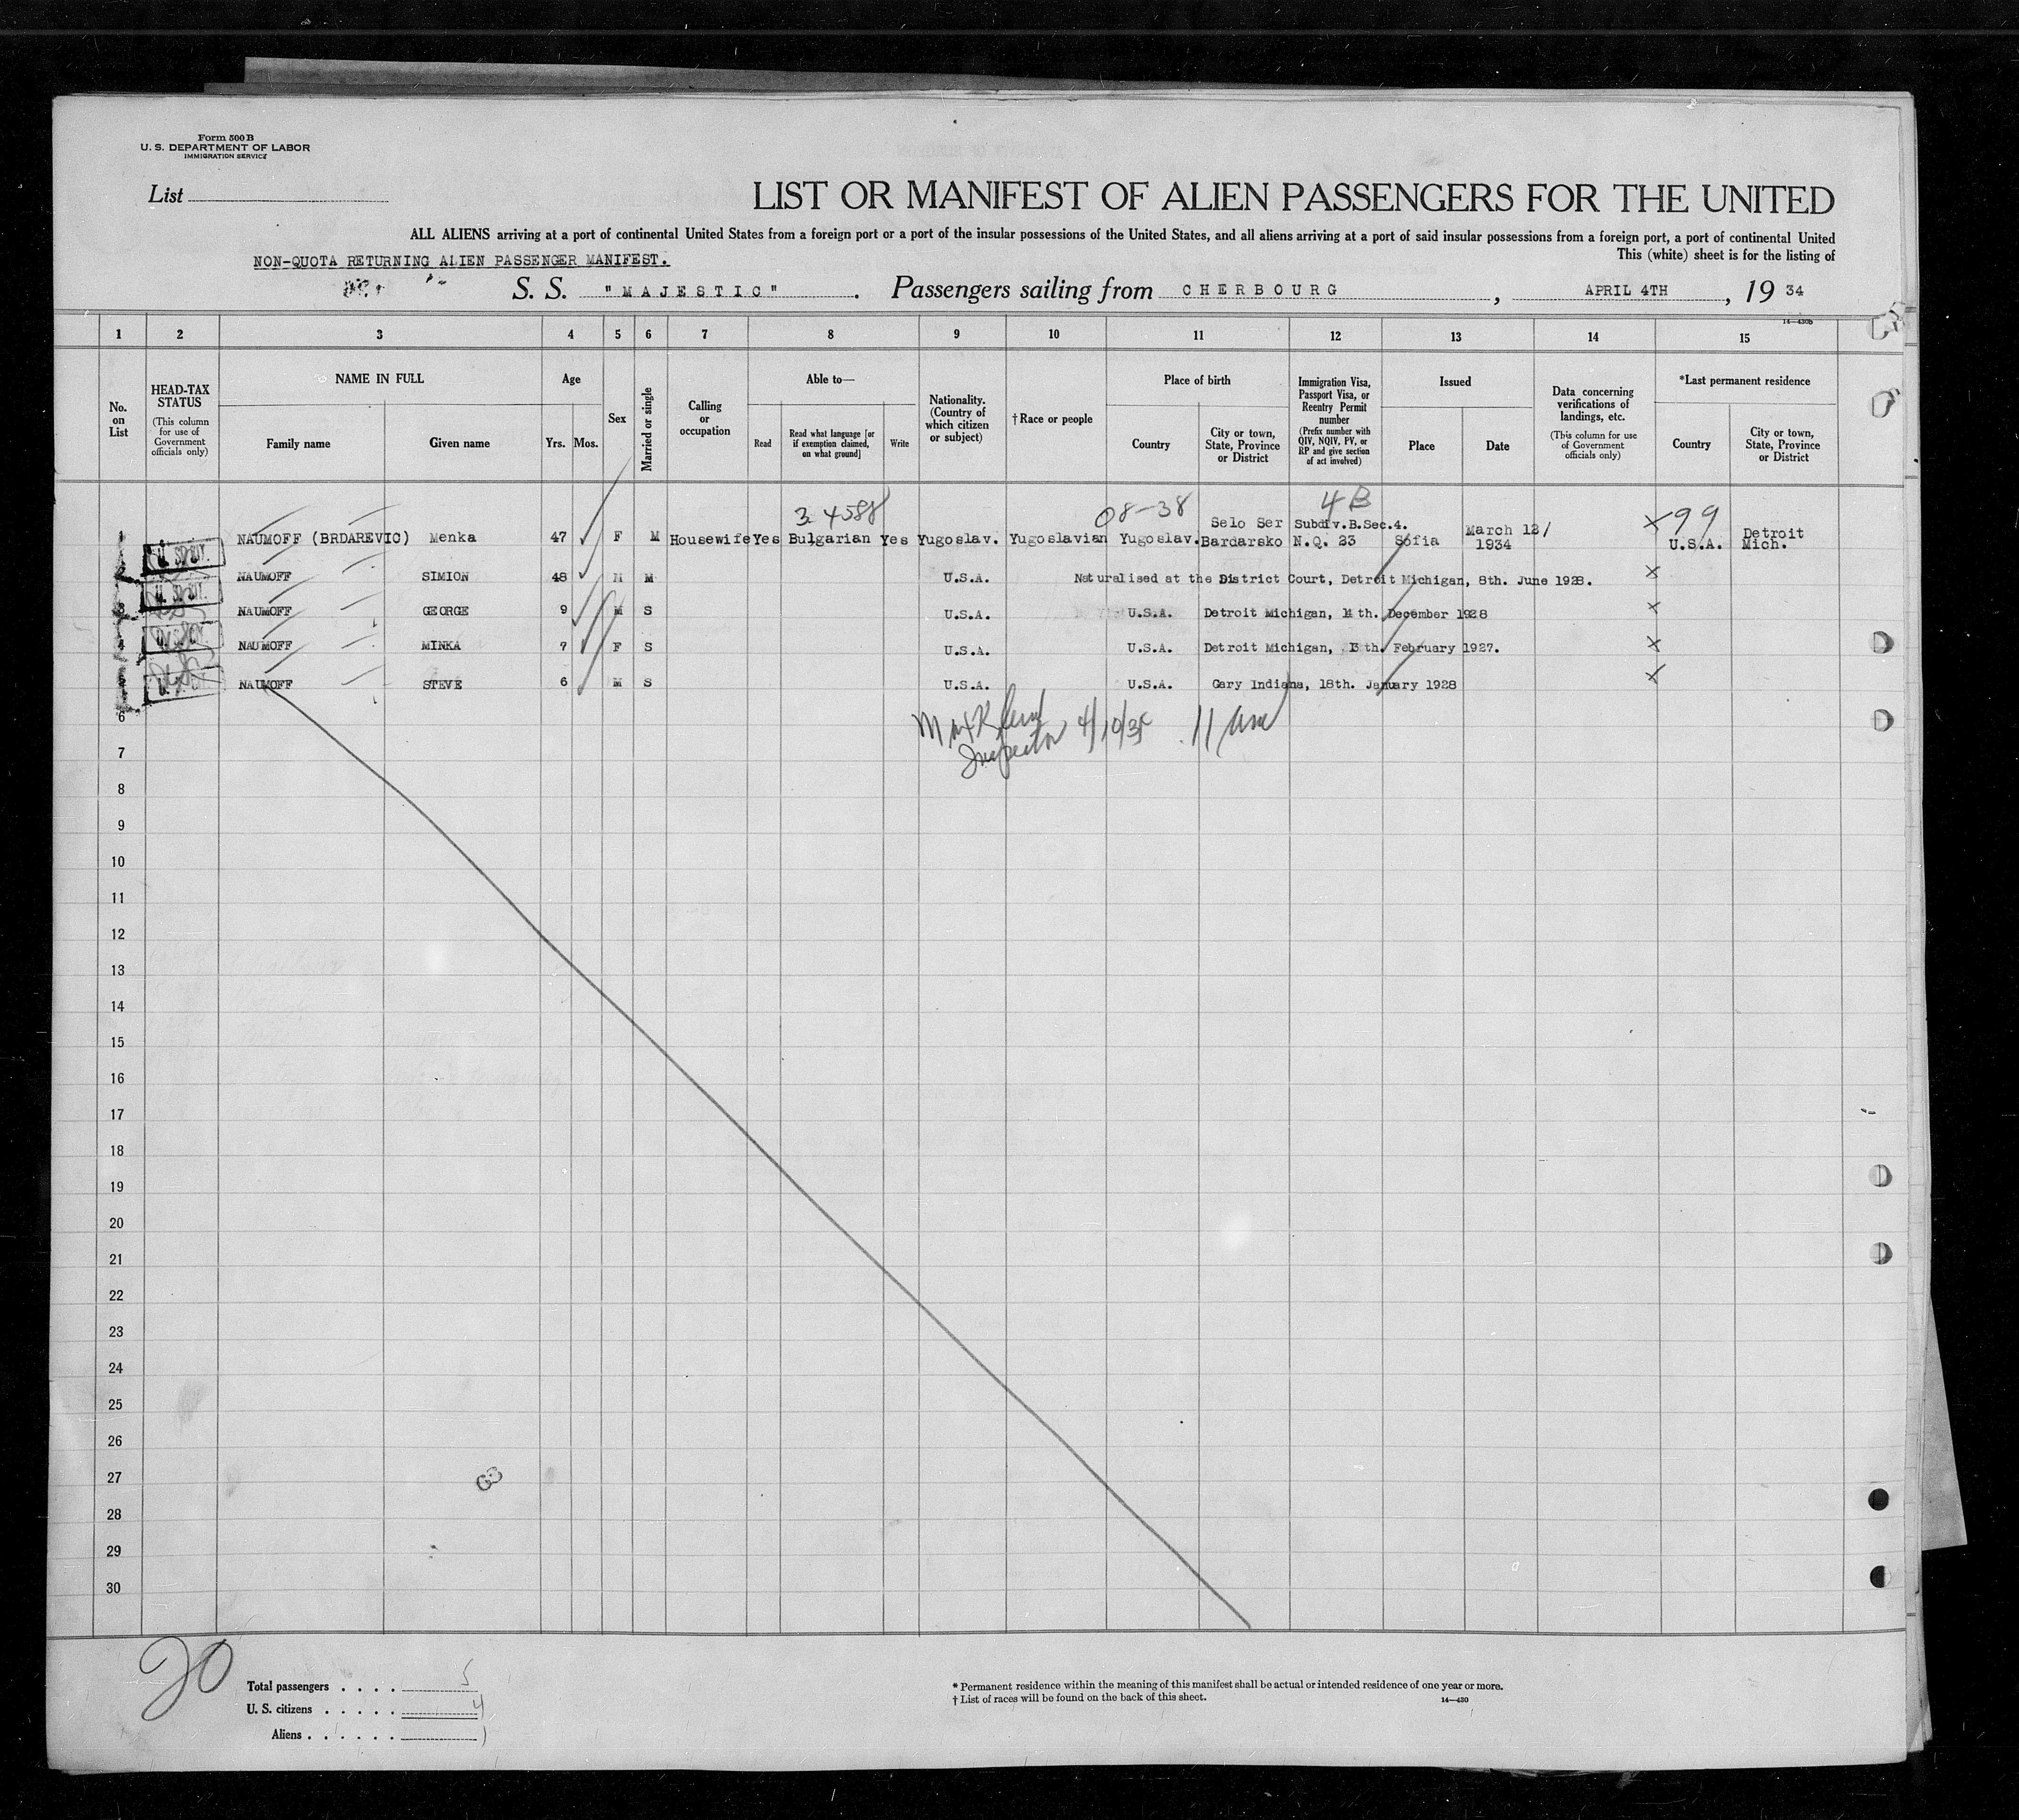 Form 500 B
U. S. DEPARTMENT OF LABOR
IMMIGRATION SERVICE
List
LIST OR MANIFEST OF ALIEN PASSENGERS FOR THE UNITED
ALL ALIENS arriving at a port of continental United States from a foreign port or a port of the insular possessions of the United States, and all aliens arriving at a port of said insular possessions from a foreign port, a port of continental United
This (white) sheet is for the listing of
NON-QUOTA RETURNING ALIEN PASSENGER MANIFEST.
S. S. "MAJESTIC" . Passengers sailing from CHERBOURG , APRIL 4TH , 19 34
14—430b
1 2 3 4 5 6 7 8 9 10 11 12 13 14 15
No. on List
HEAD-TAX STATUS
(This column for use of Government officials only)
NAME IN FULL
Family name Given name
Age
Yrs. Mos.
Sex
Married or single
Calling or occupation
Able to—
Read
Read what language [or if exemption claimed, on what ground]
Write
Nationality. (Country of which citizen or subject)
† Race or people
Place of birth
Country
City or town, State, Province or District
Immigration Visa, Passport Visa, or Reentry Permit number
(Prefix number with QIV, NQIV, PV, or RP and give section of act involved)
Issued
Place Date
Data concerning verifications of landings, etc.
(This column for use of Government officials only)
*Last permanent residence
Country
City or town, State, Province or District
3 4588 08-38 4 B
Selo Ser Subdiv.B.Sec.4. March 12/ X 99 Detroit
1 NAUMOFF (BRDAREVIC) Menka 47 F M Housewife Yes Bulgarian Yes Yugoslav. Yugoslavian Yugoslav. Bardarsko N.Q. 23 Sofia 1934 U.S.A. Mich.
2 NAUMOFF SIMION 48 M M U.S.A. Naturalised at the District Court, Detroit Michigan, 8th. June 1928. X
3 NAUMOFF GEORGE 9 M S U.S.A. U.S.A. Detroit Michigan, 14th. December 1928 X
4 NAUMOFF MINKA 7 F S U.S.A. U.S.A. Detroit Michigan, 13th. February 1927. X
5 NAUMOFF STEVE 6 M S U.S.A. U.S.A. Gary Indiana, 18th. January 1928 X
Inspector 4/10/34 11 am
6
7
8
9
10
11
12
13
14
15
16
17
18
19
20
21
22
23
24
25
26
27
28
29
30
20
Total passengers . . . . 5
U. S. citizens . . . . . 4
Aliens . . . . . . 1
* Permanent residence within the meaning of this manifest shall be actual or intended residence of one year or more.
† List of races will be found on the back of this sheet.
14—430